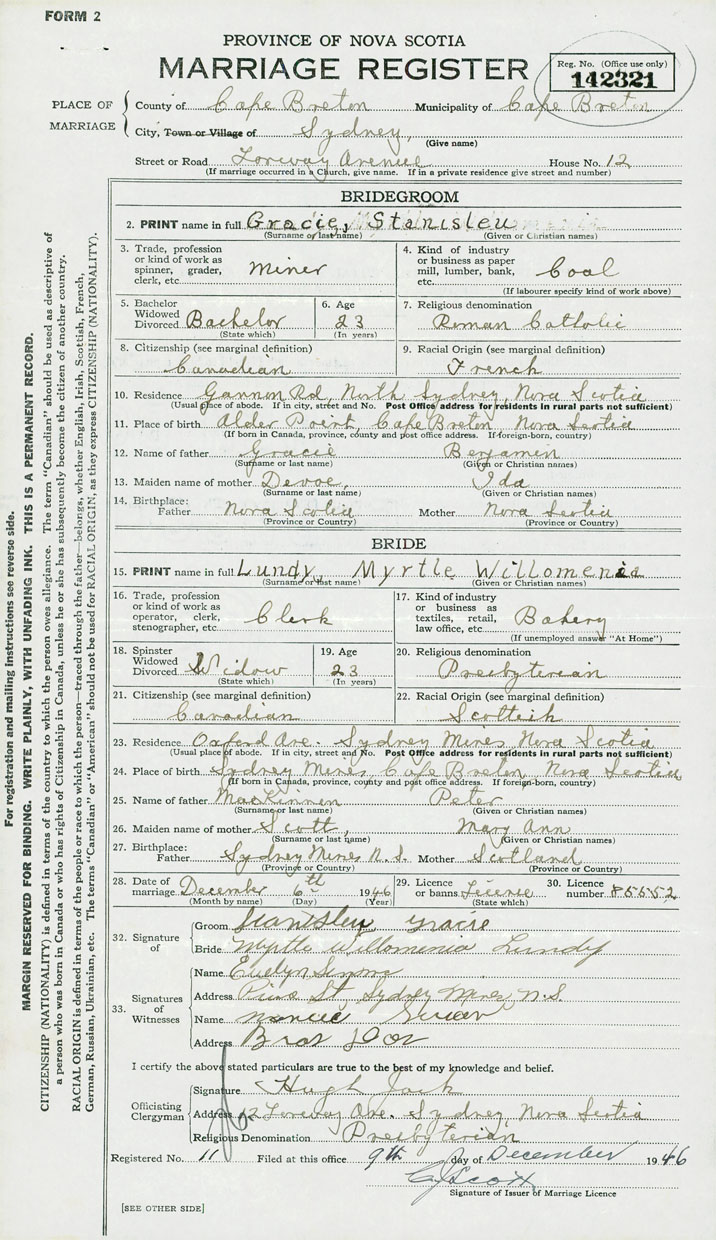 FORM 2
PROVINCE OF NOVA SCOTIA
MARRIAGE REGISTER
Reg. No. (Office use only)
142321
PLACE OF MARRIAGE
County of Cape Breton Municipality of Cape Breton
City, Town or Village of Sydney,
(Give name)
Street or Road Lorway Avenue House No. 12
(If marriage occurred in a Church, give name. If in a private residence give street and number)
BRIDEGROOM
2. PRINT name in full Gracie, Stanisleu
(Surname or last name) (Given or Christian names)
3. Trade, profession or kind of work as spinner, grader, clerk, etc. Miner
4. Kind of industry or business as paper mill, lumber, bank, etc. Coal
(If labourer specify kind of work above)
5. Bachelor Widowed Divorced Bachelor
(State which)
6. Age 23
(In years)
7. Religious denomination
Roman Catholic
8. Citizenship (see marginal definition)
Canadian
9. Racial Origin (see marginal definition)
French
10. Residence Gannon Rd, North Sydney, Nova Scotia
(Usual place of abode. If in city, street and No. Post Office address for residents in rural parts not sufficient)
11. Place of birth Alder Point, Cape Breton Nova Scotia
(If born in Canada, province, county and post office address. If foreign-born, country)
12. Name of father Gracie Benjamin
(Surname or last name) (Given or Christian names)
13. Maiden name of mother Devoe, Ida
(Surname or last name) (Given or Christian names)
14. Birthplace: Father Nova Scotia Mother Nova Scotia
(Province or Country) (Province or Country)
BRIDE
15. PRINT name in full Lundy, Myrtle Willomenia
(Surname or last name) (Given or Christian names)
16. Trade, profession or kind of work as operator, clerk, stenographer, etc. Clerk
17. Kind of industry or business as textiles, retail, law office, etc. Bakery
(If unemployed answer "At Home")
18. Spinster Widowed Divorced Widow
(State which)
19. Age 23
(In years)
20. Religious denomination
Presbyterian
21. Citizenship (see marginal definition)
Canadian
22. Racial Origin (see marginal definition)
Scottish
23. Residence Oxford Ave. Sydney Mines Nova Scotia
(Usual place of abode. If in city, street and No. Post Office address for residents in rural parts not sufficient)
24. Place of birth Sydney Mines, Cape Breton Nova Scotia
(If born in Canada, province, county and post office address. If foreign-born, country)
25. Name of father MacKinnon Peter
(Surname or last name) (Given or Christian names)
26. Maiden name of mother Scott, Mary Ann
(Surname or last name) (Given or Christian names)
27. Birthplace: Father Sydney Mines N.S. Mother Scotland
(Province or Country) (Province or Country)
28. Date of marriage December 6th 1946
(Month by name) (Day) (Year)
29. Licence or banns License
(State which)
30. Licence number 85552
32. Signature of
Groom Stanisleu Gracie
Bride Myrtle Willomenia Lundy
33. Signatures of Witnesses
Name Evelyn
Address Pine St Sydney Mines N.S.
Name
Address Bras D'or
I certify the above stated particulars are true to the best of my knowledge and belief.
Officiating Clergyman
Signature Hugh Jack
Address 12 Lorway Ave. Sydney, Nova Scotia
Religious Denomination Presbyterian
Registered No. 11 Filed at this office 9th day of December 1946
Scott
Signature of Issuer of Marriage Licence
[SEE OTHER SIDE]
For registration and mailing instructions see reverse side.
MARGIN RESERVED FOR BINDING. WRITE PLAINLY, WITH UNFADING INK. THIS IS A PERMANENT RECORD.
CITIZENSHIP (NATIONALITY) is defined in terms of the country to which the person owes allegiance. The term "Canadian" should be used as descriptive of
a person who was born in Canada or who has rights of Citizenship in Canada, unless he or she has subsequently become the citizen of another country.
RACIAL ORIGIN is defined in terms of the people or race to which the person—traced through the father—belongs, whether English, Irish, Scottish, French,
German, Russian, Ukrainian, etc. The terms "Canadian" or "American" should not be used for RACIAL ORIGIN, as they express CITIZENSHIP (NATIONALITY).